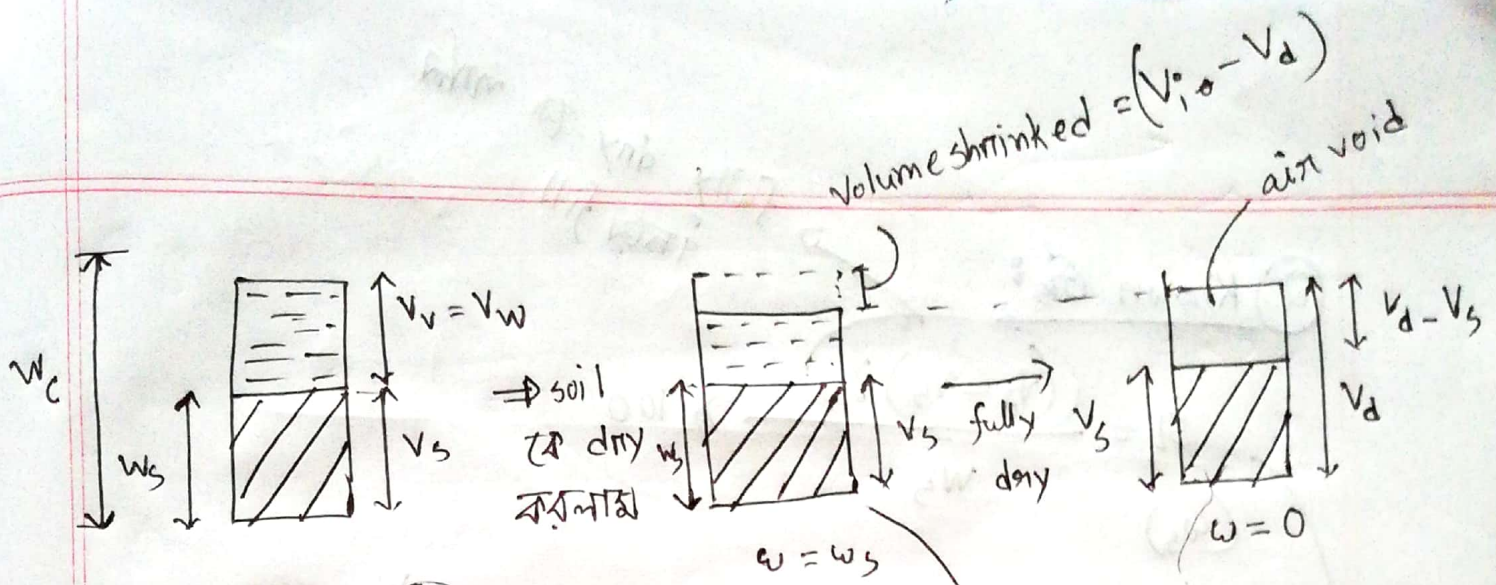 volume shrinked = (Vi - Vd)
air void
Wc
Ws
Vv = Vw
Vs
⇒ soil
কে dry
করলাম
Ws
Vs
ω = ωs
fully
dry
Vs
Vd - Vs
Vd
ω = 0